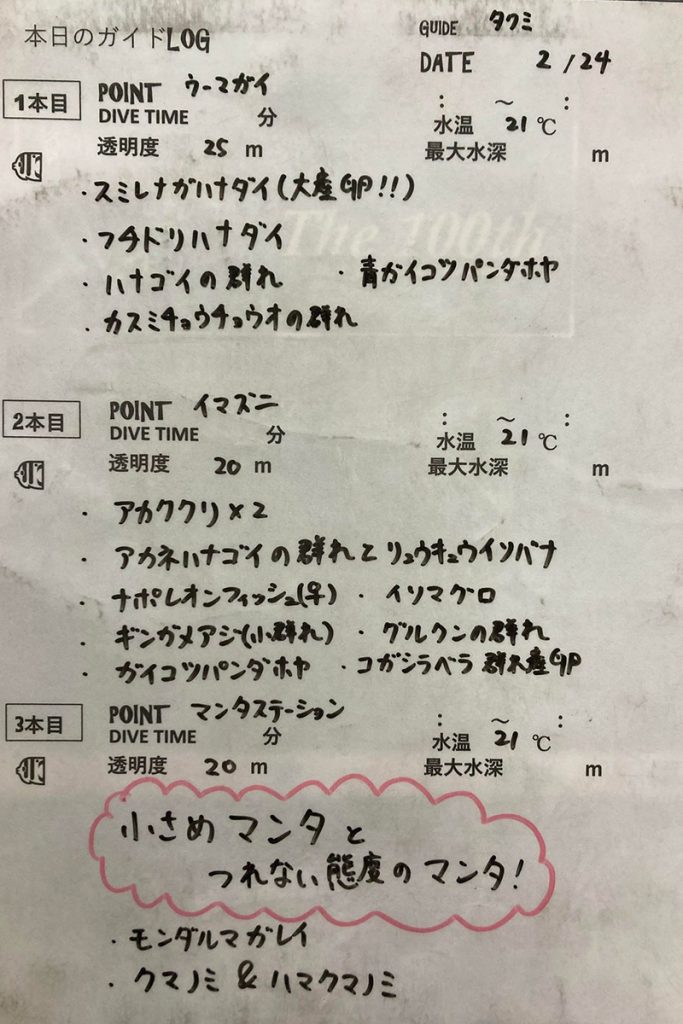 本日のガイドLOG
GUIDE タクミ
DATE 2/24
1本目 POINT ウーマガイ : ～ :
DIVE TIME 分 水温 21℃
透明度 25m 最大水深 m
・スミレナガハナダイ(大産GP!!)
・フチドリハナダイ
・ハナゴイの群れ ・青ガイコツパンダホヤ
・カスミチョウチョウオの群れ
The 100th
2本目 POINT イマズニ : ～ :
DIVE TIME 分 水温 21℃
透明度 20m 最大水深 m
・アカククリ×2
・アカネハナゴイの群れとリュウキュウイソバナ
・ナポレオンフィッシュ(♀) ・イソマグロ
・ギンガメアジ(小群れ) ・グルクンの群れ
・ガイコツパンダホヤ ・コガシラベラ群れ産GP
3本目 POINT マンタステーション : ～ :
DIVE TIME 分 水温 21℃
透明度 20m 最大水深 m
小さめマンタと
つれない態度のマンタ!
・モンダルマガレイ
・クマノミ&ハマクマノミ